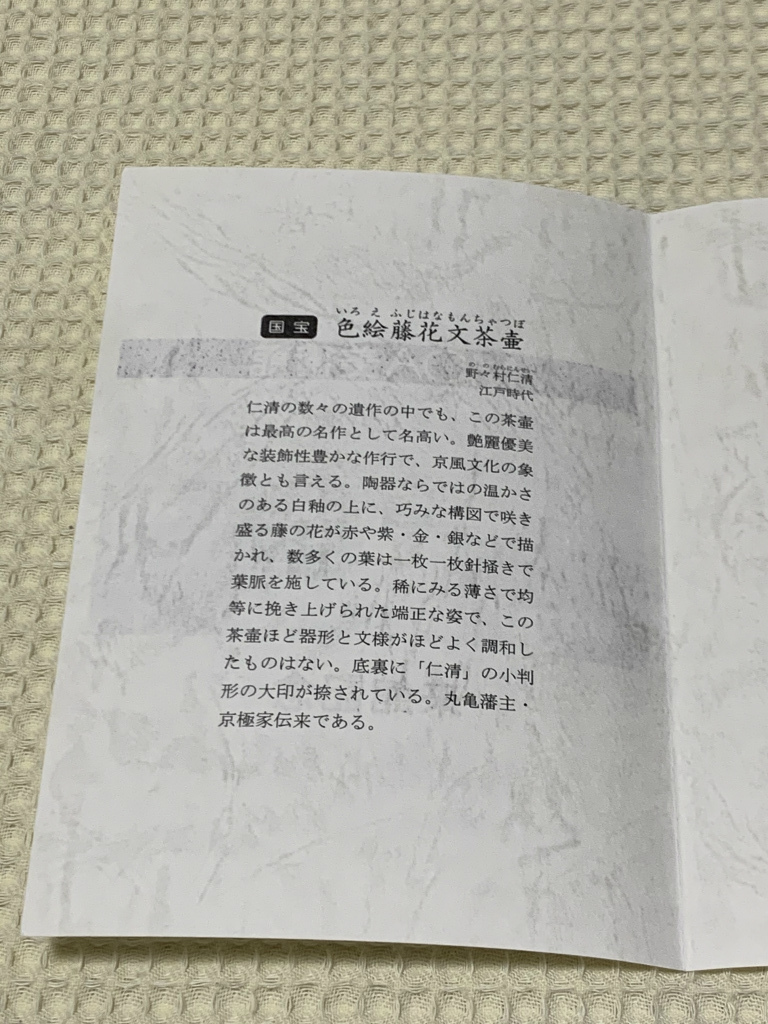 いろ え ふじはなもんちゃつぼ
国宝 色絵藤花文茶壷
野々村仁清
江戸時代
仁清の数々の遺作の中でも、この茶壷
は最高の名作として名高い。艶麗優美
な装飾性豊かな作行で、京風文化の象
徴とも言える。陶器ならではの温かさ
のある白釉の上に、巧みな構図で咲き
盛る藤の花が赤や紫・金・銀などで描
かれ、数多くの葉は一枚一枚針掻きで
葉脈を施している。稀にみる薄さで均
等に挽き上げられた端正な姿で、この
茶壷ほど器形と文様がほどよく調和し
たものはない。底裏に「仁清」の小判
形の大印が捺されている。丸亀藩主・
京極家伝来である。